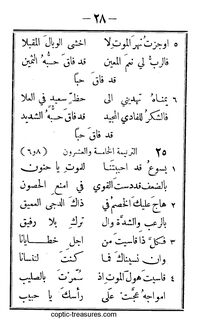 — ٢٨ —
٥ اوجزتَ نهرَ الموتِ لا اخشى الوبالَ المقبلا
فالربُّ لي نعم المعين قد فاق حبُّه الثمين
قد فاق حبًّا
٦ بمناهُ تهديني الى حظٍّ سعيدٍ في العلا
فالشكرُ للفادي المجيد قد فاق حبُّه الشديد
قد فاق حبًّا
٢٥ الترنيمة الخامسة والعشرون (٨و٦)
١ يسوعُ قد احببتنا لموتِ يا حنون
بالضعفِ قد دستَ القوي في امنعِ الحصون
٢ هاجَ عليك الخصمُ في ذاك الدجى العميق
بالرعبِ والشدةِ وال تركِ بلا رفيق
٣ فكلَّ ذا قاسيتَ من اجلِ خطايانا
وان نسيناك فما كنتَ لتنسانا
٤ قاسيتَ هولَ الموتِ اذ سُمّرتَ بالصليب
امواجهُ عجّت على رأسك يا حبيب
coptic-treasures.com